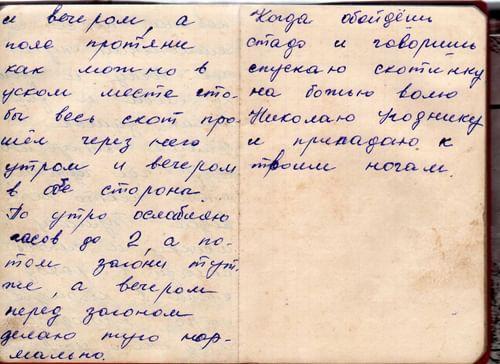 и вечером, а
пола протяни
как можно в
уском месте што-
бы весь скот про-
шёл через него
утром и вечером
в обе стороны.
По утро ослабляю
часов до 2, а по-
том загони тут-
же, а вечером
перед загоном
делаю туго нор-
мально.
Когда обойдёшь
стадо и говоришь
спускаю скотинку
на божью волю
Николаю Угоднику
и припадаю к
твоим ногам.